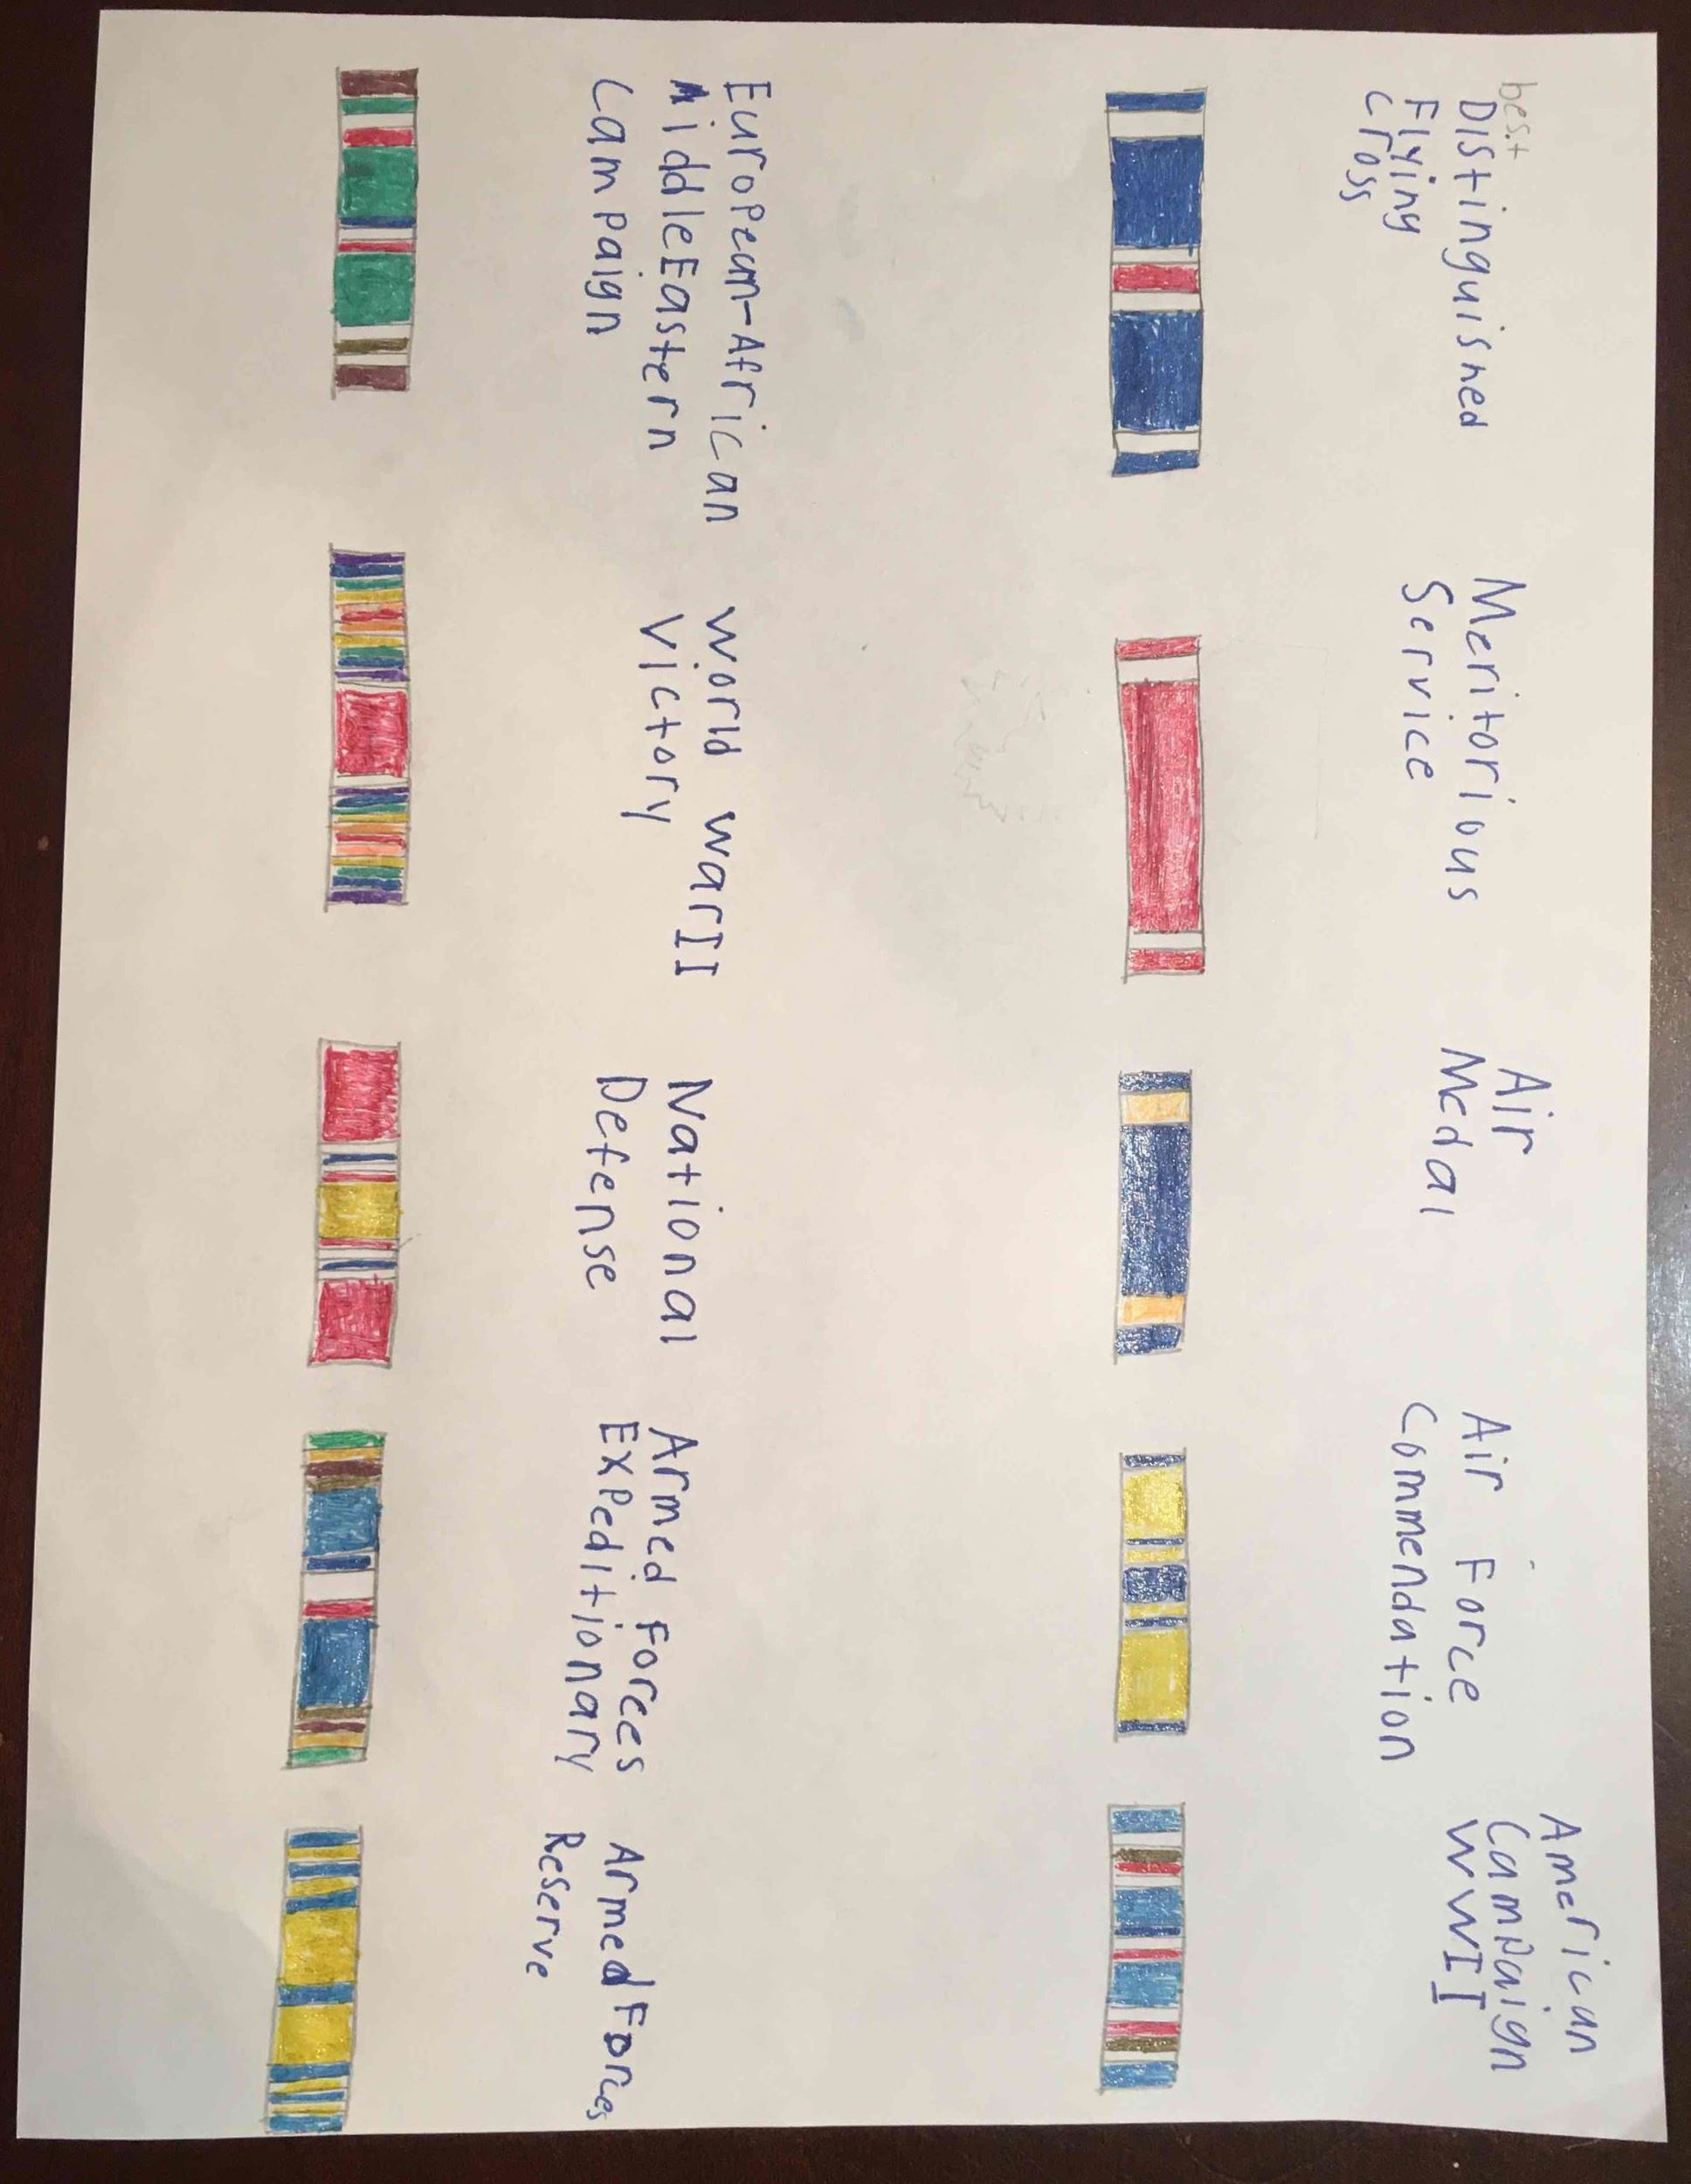 best
Distinguished
Flying
Cross
Meritorious
Service
Air
Medal
Air Force
Commendation
American
Campaign
WWII
European-African
MiddleEastern
Campaign
World WarII
Victory
National
Defense
Armed Forces
Expeditionary
Armed Forces
Reserve